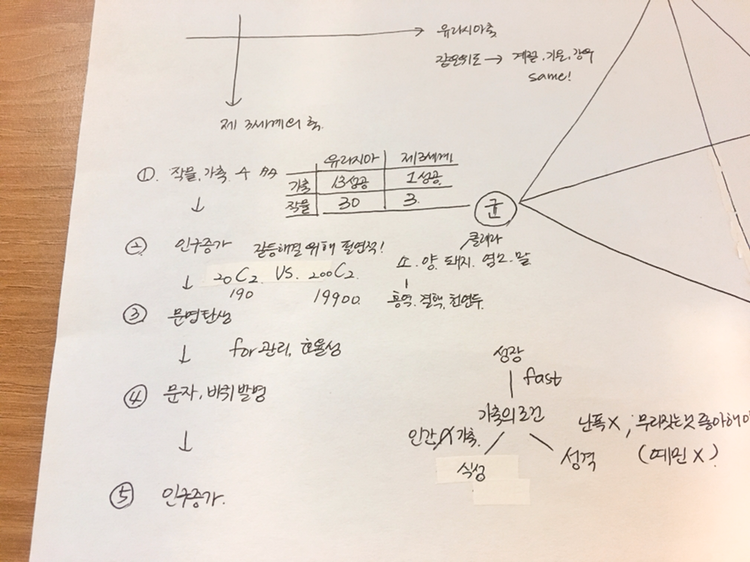 유라시아축
같은위도 → 계절, 기온, 강수
same!
제 3세계의 축
① 작물, 가축 수
유라시아 제3세계
가축 13성공 1성공
작물 30 3
↓
균
② 인구증가 갈등해결 위해 필연적!
콜레라
소. 양. 돼지. 염소. 말
↓ 20C2 VS. 200C2
190 19900
홍역. 결핵. 천연두.
③ 문명탄생
↓ for 관리, 효율성
성장
fast
④ 문자, 바퀴발명
가축의 조건
난폭X ; 무리짓는것 좋아해야
인간 X 가축.
식성
성격
(예민 X)
↓
⑤ 인구증가.